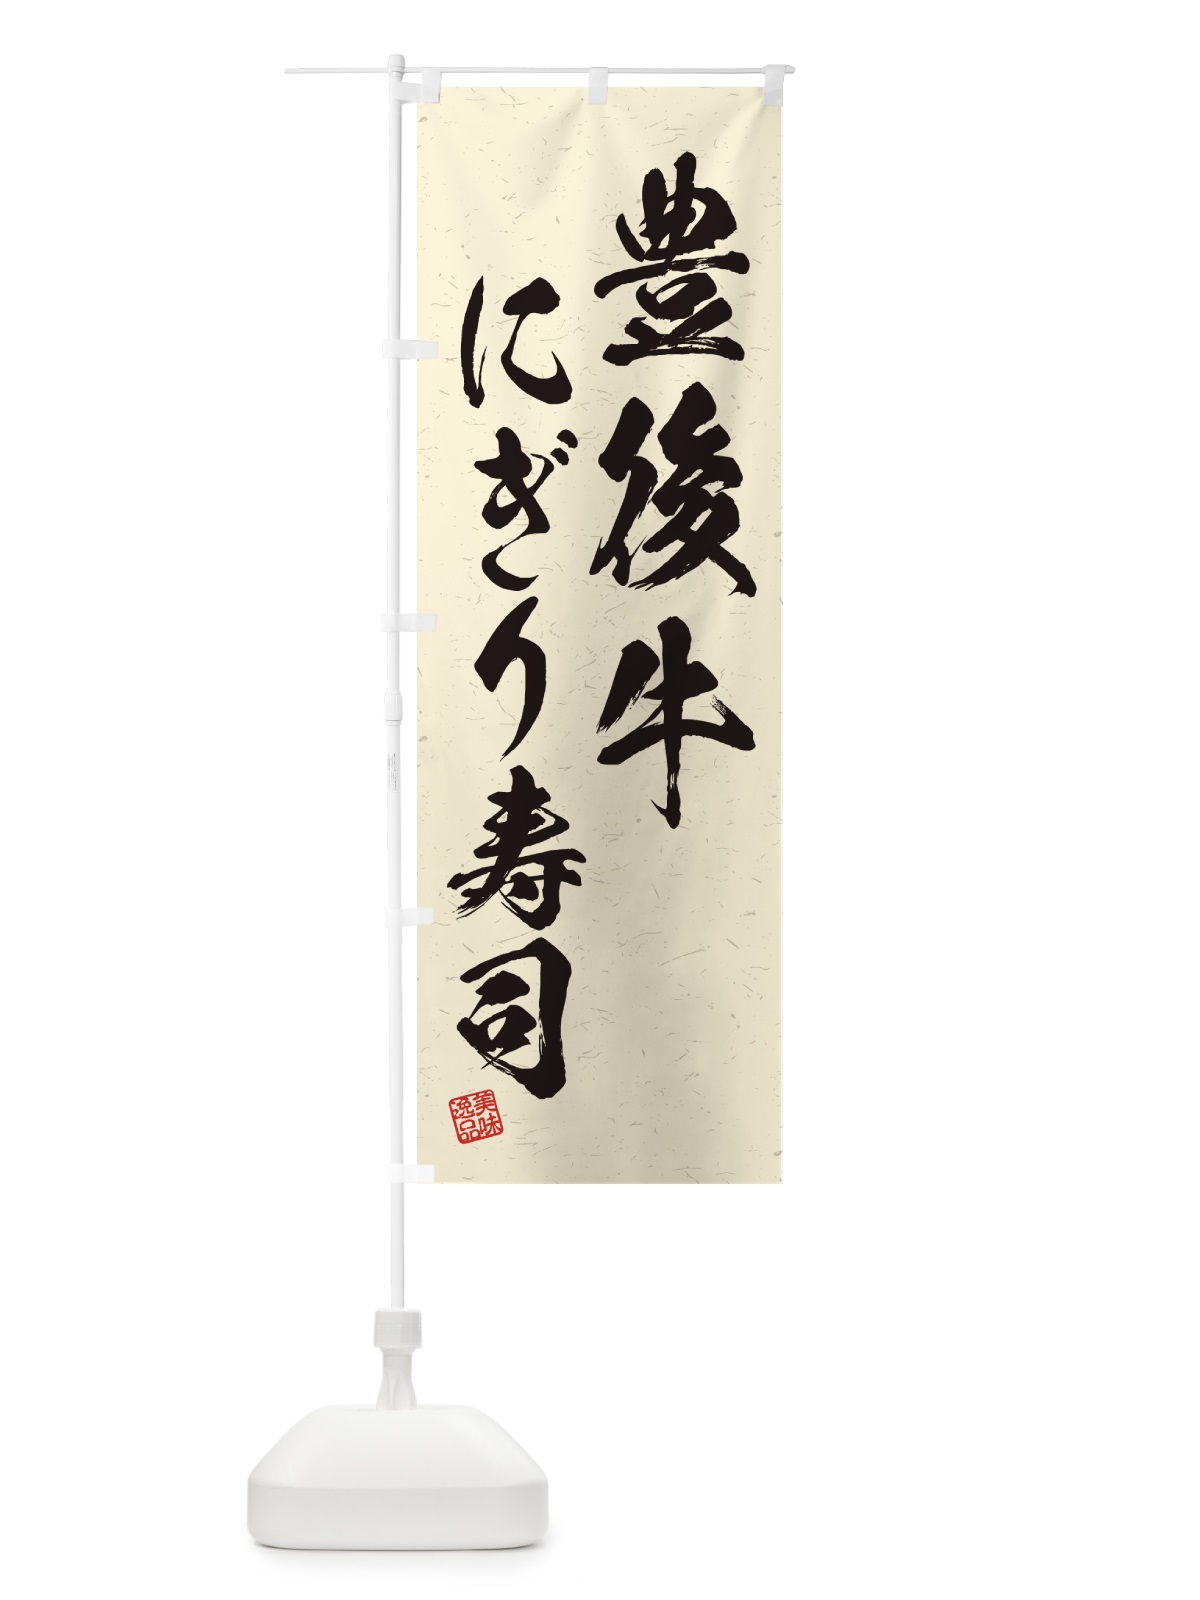 豊後牛
にぎり寿司
美味
逸品